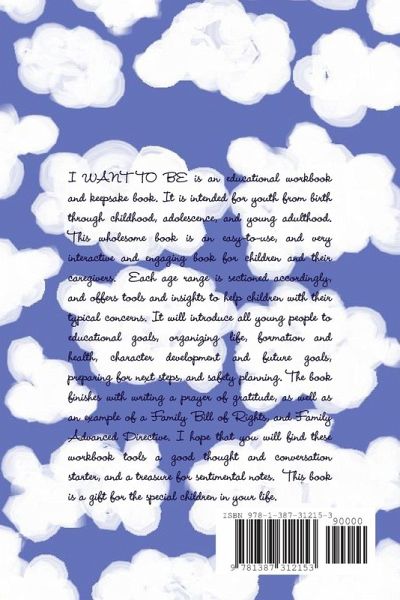 I WANT TO BE is an educational workbook
and keepsake book. It is intended for youth from birth
through childhood, adolescence, and young adulthood.
This wholesome book is an easy-to-use, and very
interactive and engaging book for children and their
caregivers. Each age range is sectioned accordingly,
and offers tools and insights to help children with their
typical concerns. It will introduce all young people to
educational goals, organizing life, formation and
health, character development and future goals,
preparing for next steps, and safety planning. The book
finishes with writing a prayer of gratitude, as well as
an example of a Family Bill of Rights, and Family
Advanced Directive. I hope that you will find these
workbook tools a good thought and conversation
starter, and a treasure for sentimental notes. This book
is a gift for the special children in your life.
ISBN 978-1-387-31215-3
90000
9 781387 312153